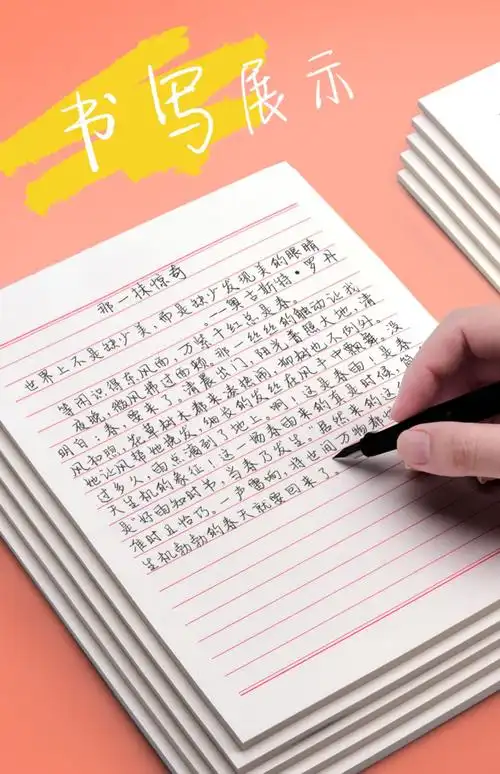 书写展示
那一抹惊奇
世界上不是缺少美,而是缺少发现美的眼睛
——奥古斯特·罗丹
等闲识得东风面,万紫千红总是春。
夜晚,微风拂过面颊,那一丝丝的触动让我
明白:春,要来了。清晨出门,阳光普照大地,清
风和煦,花草树木都来凑热闹,柳树也不例外。
她让风帮她梳发,细长的发丝在风中飘舞,没
过多久,雨点滴到了地上。啊!这是春雨!是春
天生机的象征!这一场春雨来的真是时候,简
是“好雨知时节,当春乃发生。”虽然来的这么
准时且恰巧。一声雷响,将世间万物都
生机勃勃的春天就要回来了。